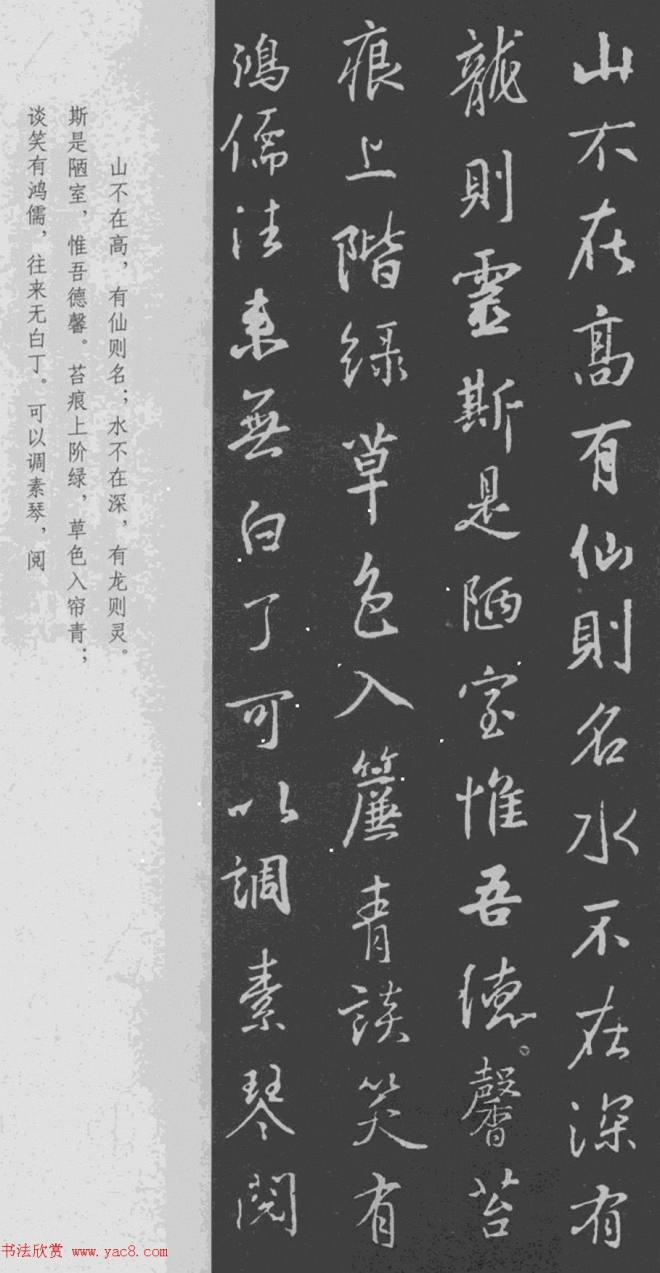 山不在高有仙則名水不在深有
龍則靈斯是陋室惟吾德馨苔
痕上階緑草色入簾青談笑有
鴻儒往来無白丁可以調素琴閱
山不在高，有仙则名；水不在深，有龙则灵。
斯是陋室，惟吾德馨。苔痕上阶绿，草色入帘青；
谈笑有鸿儒，往来无白丁。可以调素琴，阅
书法欣赏 www.yac8.com